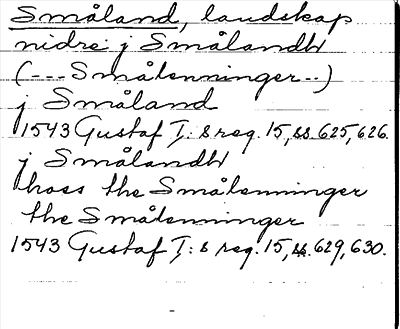 Småland, landskap
nidre j Smålandh
(---Smålenninger--)
j Småland
1543 Gustaf I:s reg. 15, ss. 625, 626.
j Smålandh
hoss the Smålenninger
the Smålenninger
1543 Gustaf I:s reg. 15, ss. 629, 630.